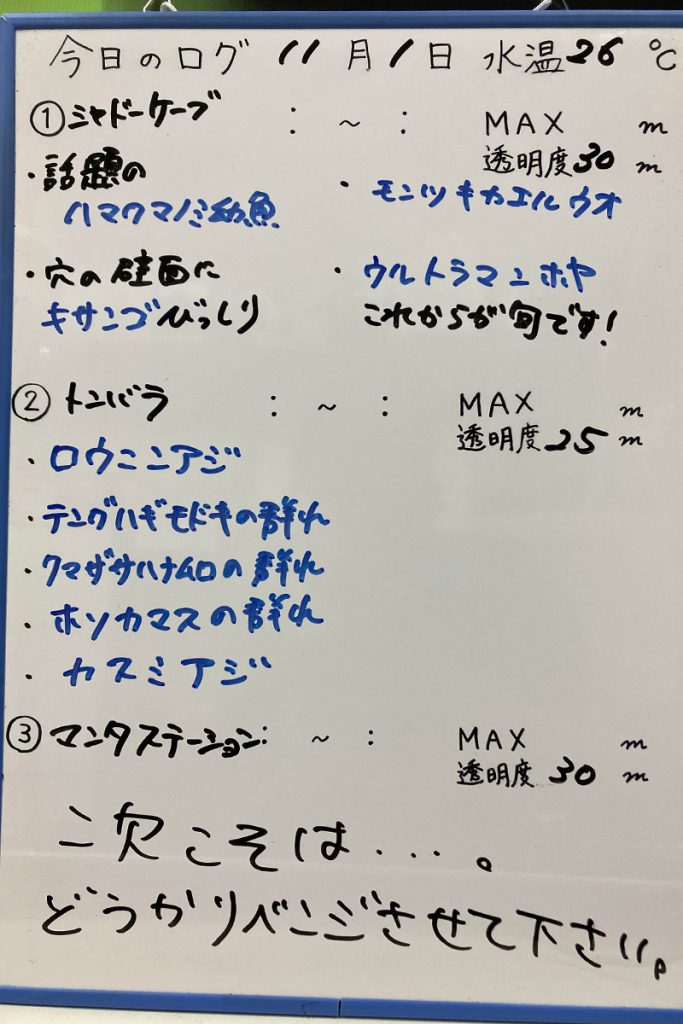 今日のログ 11月1日 水温26℃
①シャドーケーブ : ~ : MAX m
透明度30m
・話題の
ハマクマノミ幼魚
・モンツキカエルウオ
・穴の壁面に
キサンゴびっしり
・ウルトラマンホヤ
これからが旬です!
②トンバラ : ~ : MAX m
透明度25m
・ロウニンアジ
・テングハギモドキの群れ
・クマザサハナムロの群れ
・ホソカマスの群れ
・カスミアジ
③マンタステーション : ~ : MAX m
透明度30m
次こそは・・・。
どうかリベンジさせて下さい。